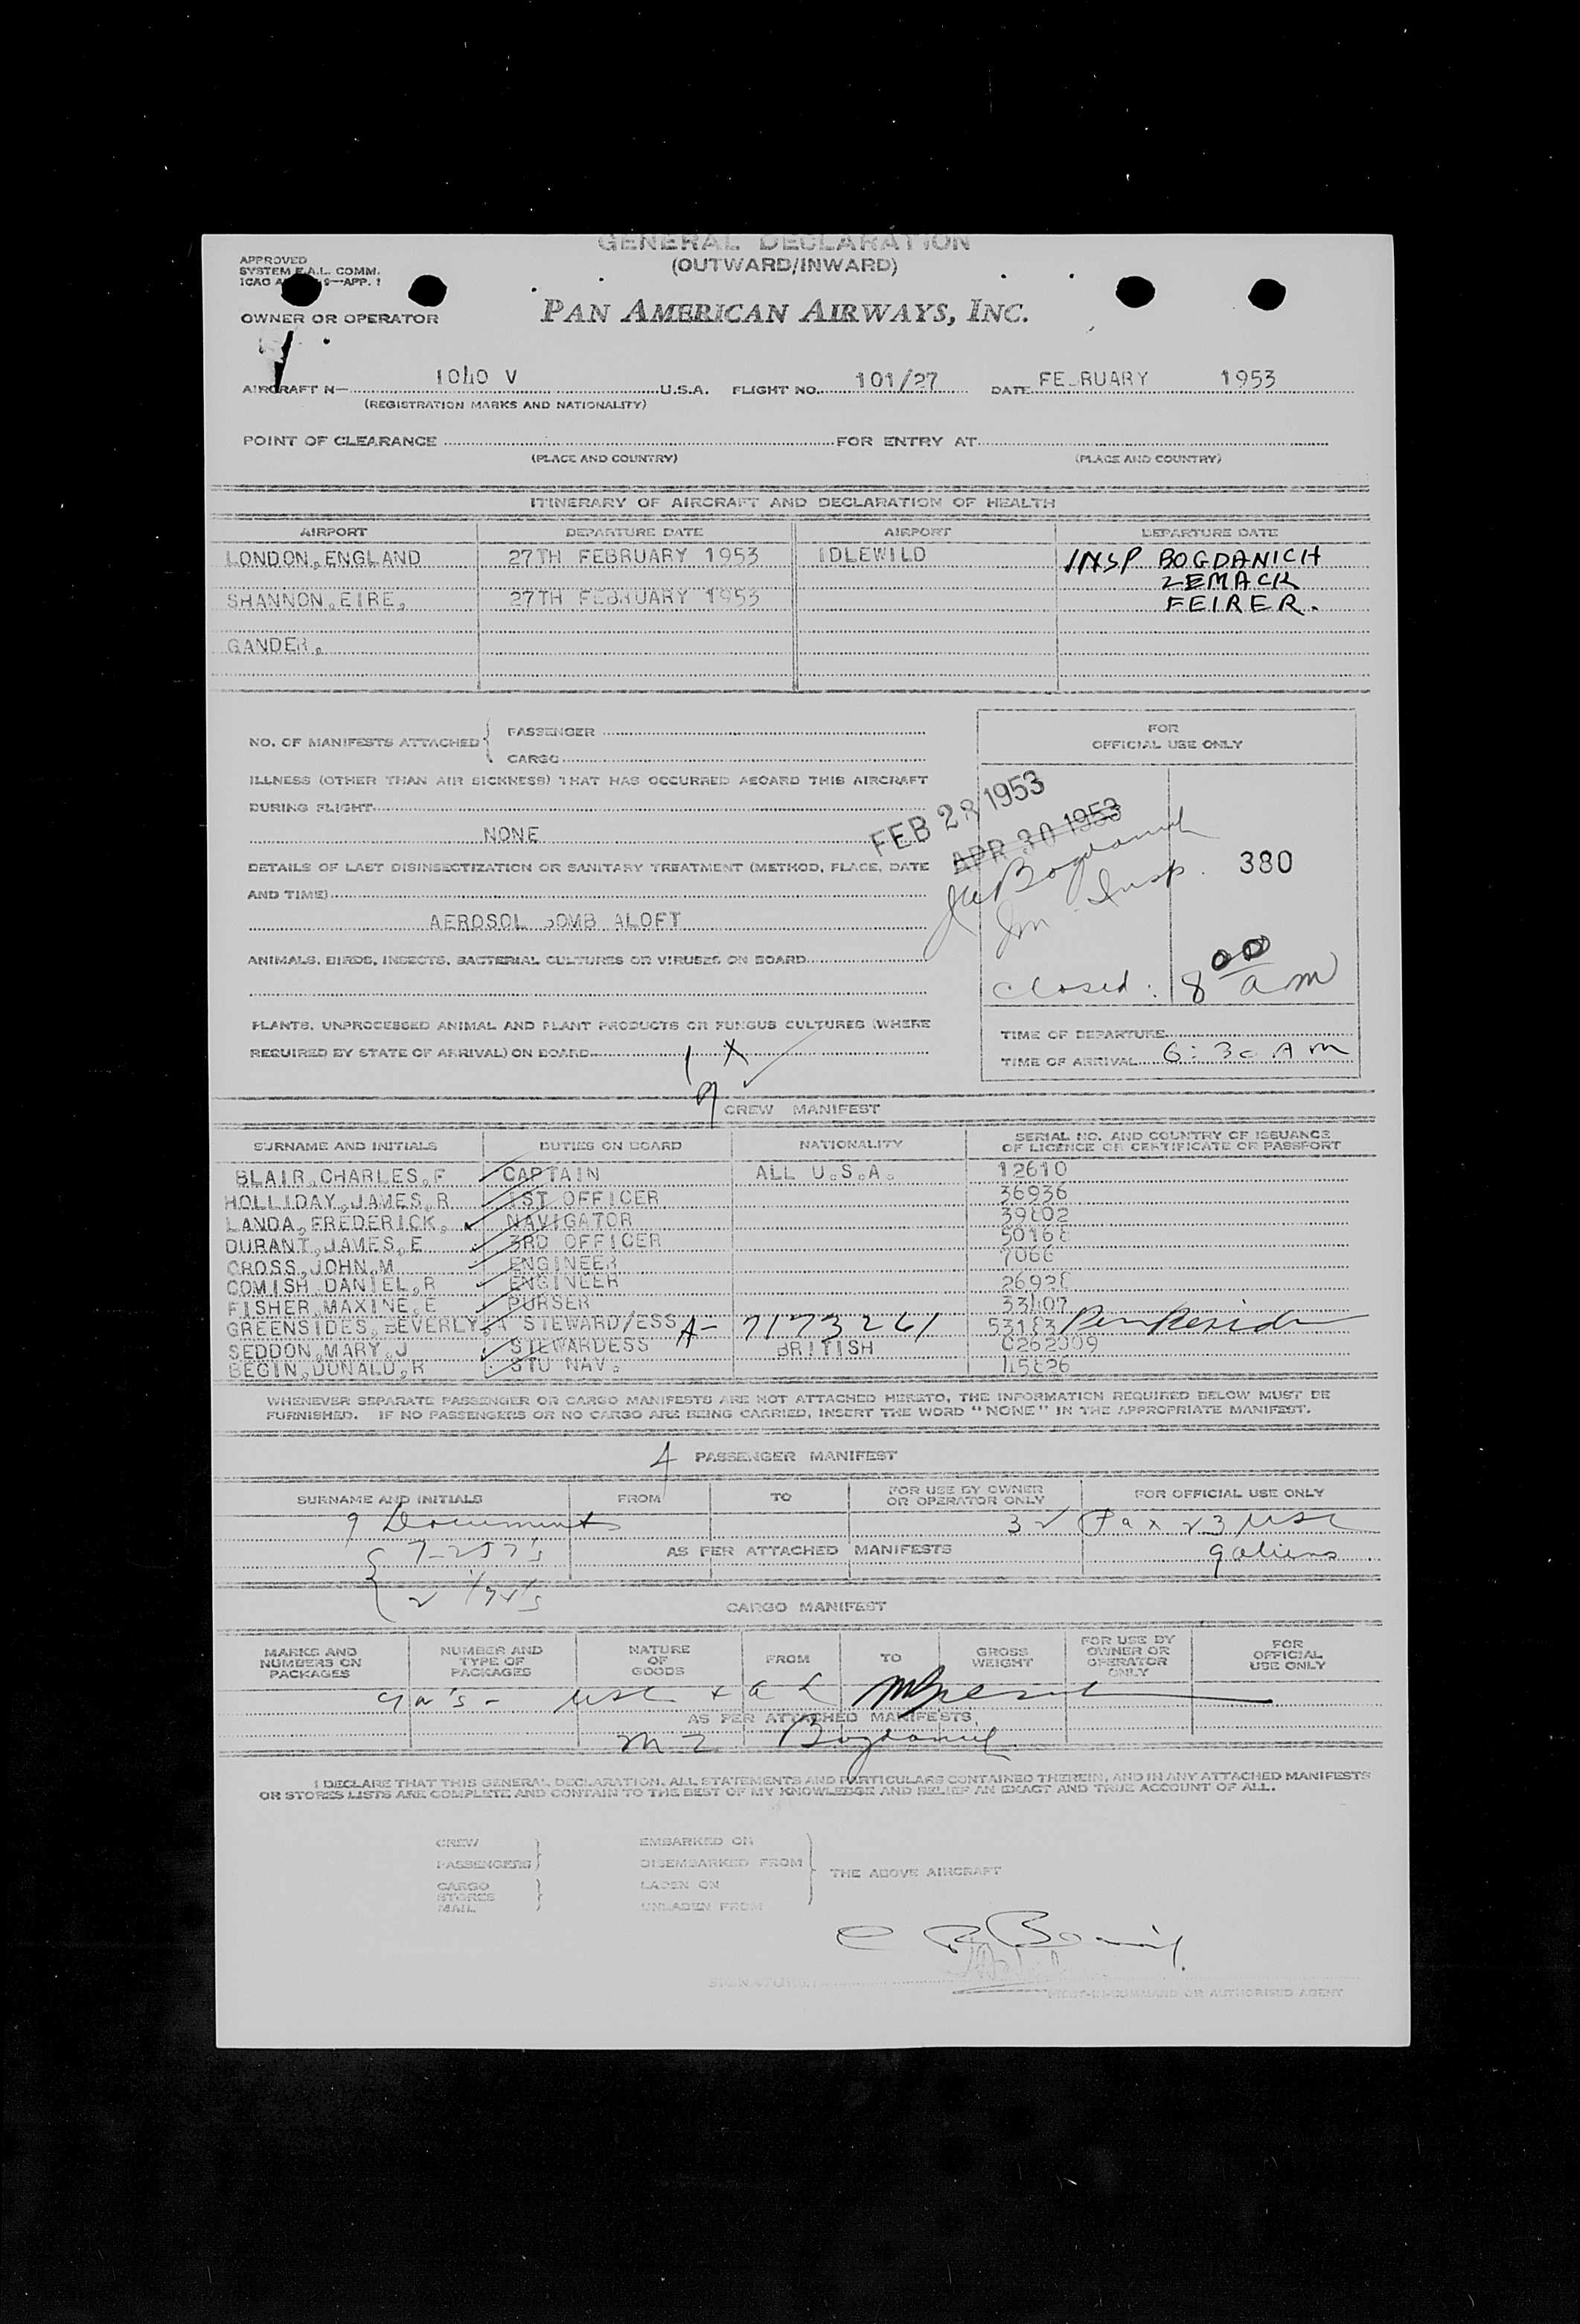 GENERAL DECLARATION
(OUTWARD/INWARD)
APPROVED
SYSTEM E.A.L. COMM.
ICAO 9—APP. 1
OWNER OR OPERATOR
PAN AMERICAN AIRWAYS, INC.
AIRCRAFT N— 1040 V U.S.A. FLIGHT NO. 101/27 DATE FE RUARY 1953
(REGISTRATION MARKS AND NATIONALITY)
POINT OF CLEARANCE FOR ENTRY AT
(PLACE AND COUNTRY) (PLACE AND COUNTRY)
ITINERARY OF AIRCRAFT AND DECLARATION OF HEALTH
AIRPORT DEPARTURE DATE AIRPORT DEPARTURE DATE
LONDON, ENGLAND 27TH FEBRUARY 1953 IDLEWILD INSP BOGDANICH
ZEMACK
SHANNON, EIRE, 27TH FEBRUARY 1953 FEIRER.
GANDER,
NO. OF MANIFESTS ATTACHED { PASSENGER
CARGO
FOR
OFFICIAL USE ONLY
ILLNESS (OTHER THAN AIR SICKNESS) THAT HAS OCCURRED ABOARD THIS AIRCRAFT
DURING FLIGHT
NONE
FEB 28 1953
APR 30 1953
DETAILS OF LAST DISINSECTIZATION OR SANITARY TREATMENT (METHOD, PLACE, DATE
AND TIME)
Bogdanich
Im. Insp. 380
AEROSOL BOMB ALOFT
ANIMALS, BIRDS, INSECTS, BACTERIAL CULTURES OR VIRUSES ON BOARD
closed: 8 00 am
PLANTS, UNPROCESSED ANIMAL AND PLANT PRODUCTS OR FUNGUS CULTURES (WHERE
REQUIRED BY STATE OF ARRIVAL) ON BOARD 1 X
TIME OF DEPARTURE
TIME OF ARRIVAL 6:30 AM
9 CREW MANIFEST
SURNAME AND INITIALS DUTIES ON BOARD NATIONALITY SERIAL NO. AND COUNTRY OF ISSUANCE
OF LICENCE OR CERTIFICATE OR PASSPORT
BLAIR, CHARLES, F CAPTAIN ALL U.S.A. 12610
HOLLIDAY, JAMES, R 1ST OFFICER 36936
LANDA, FREDERICK, NAVIGATOR 39802
DURANT, JAMES, E 3RD OFFICER 50168
CROSS, JOHN, M ENGINEER 7066
COMISH, DANIEL, R ENGINEER 26928
FISHER, MAXINE, E PURSER 33407
GREENSIDES, BEVERLY, A STEWARD/ESS A- 7173261 53183
SEDDON, MARY, J STEWARDESS BRITISH C262909
BEGIN, DONALD, R STU NAV. 45826
WHENEVER SEPARATE PASSENGER OR CARGO MANIFESTS ARE NOT ATTACHED HERETO, THE INFORMATION REQUIRED BELOW MUST BE
FURNISHED. IF NO PASSENGERS OR NO CARGO ARE BEING CARRIED, INSERT THE WORD "NONE" IN THE APPROPRIATE MANIFEST.
4 PASSENGER MANIFEST
SURNAME AND INITIALS FROM TO FOR USE BY OWNER
OR OPERATOR ONLY FOR OFFICIAL USE ONLY
9 Documents 32 Pax 23 USC
7-257's AS PER ATTACHED MANIFESTS 9 aliens
CARGO MANIFEST
MARKS AND
NUMBERS ON
PACKAGES NUMBER AND
TYPE OF
PACKAGES NATURE
OF
GOODS FROM TO GROSS
WEIGHT FOR USE BY
OWNER OR
OPERATOR
ONLY FOR
OFFICIAL
USE ONLY
AS PER ATTACHED MANIFESTS
Bogdanich
I DECLARE THAT THIS GENERAL DECLARATION, ALL STATEMENTS AND PARTICULARS CONTAINED THEREIN, AND IN ANY ATTACHED MANIFESTS
OR STORES LISTS ARE COMPLETE AND CONTAIN TO THE BEST OF MY KNOWLEDGE AND BELIEF AN EXACT AND TRUE ACCOUNT OF ALL.
CREW
PASSENGERS } EMBARKED ON
DISEMBARKED FROM
CARGO
STORES
MAIL } LADEN ON
UNLADEN FROM } THE ABOVE AIRCRAFT
SIGNATURE
PILOT-IN-COMMAND OR AUTHORISED AGENT